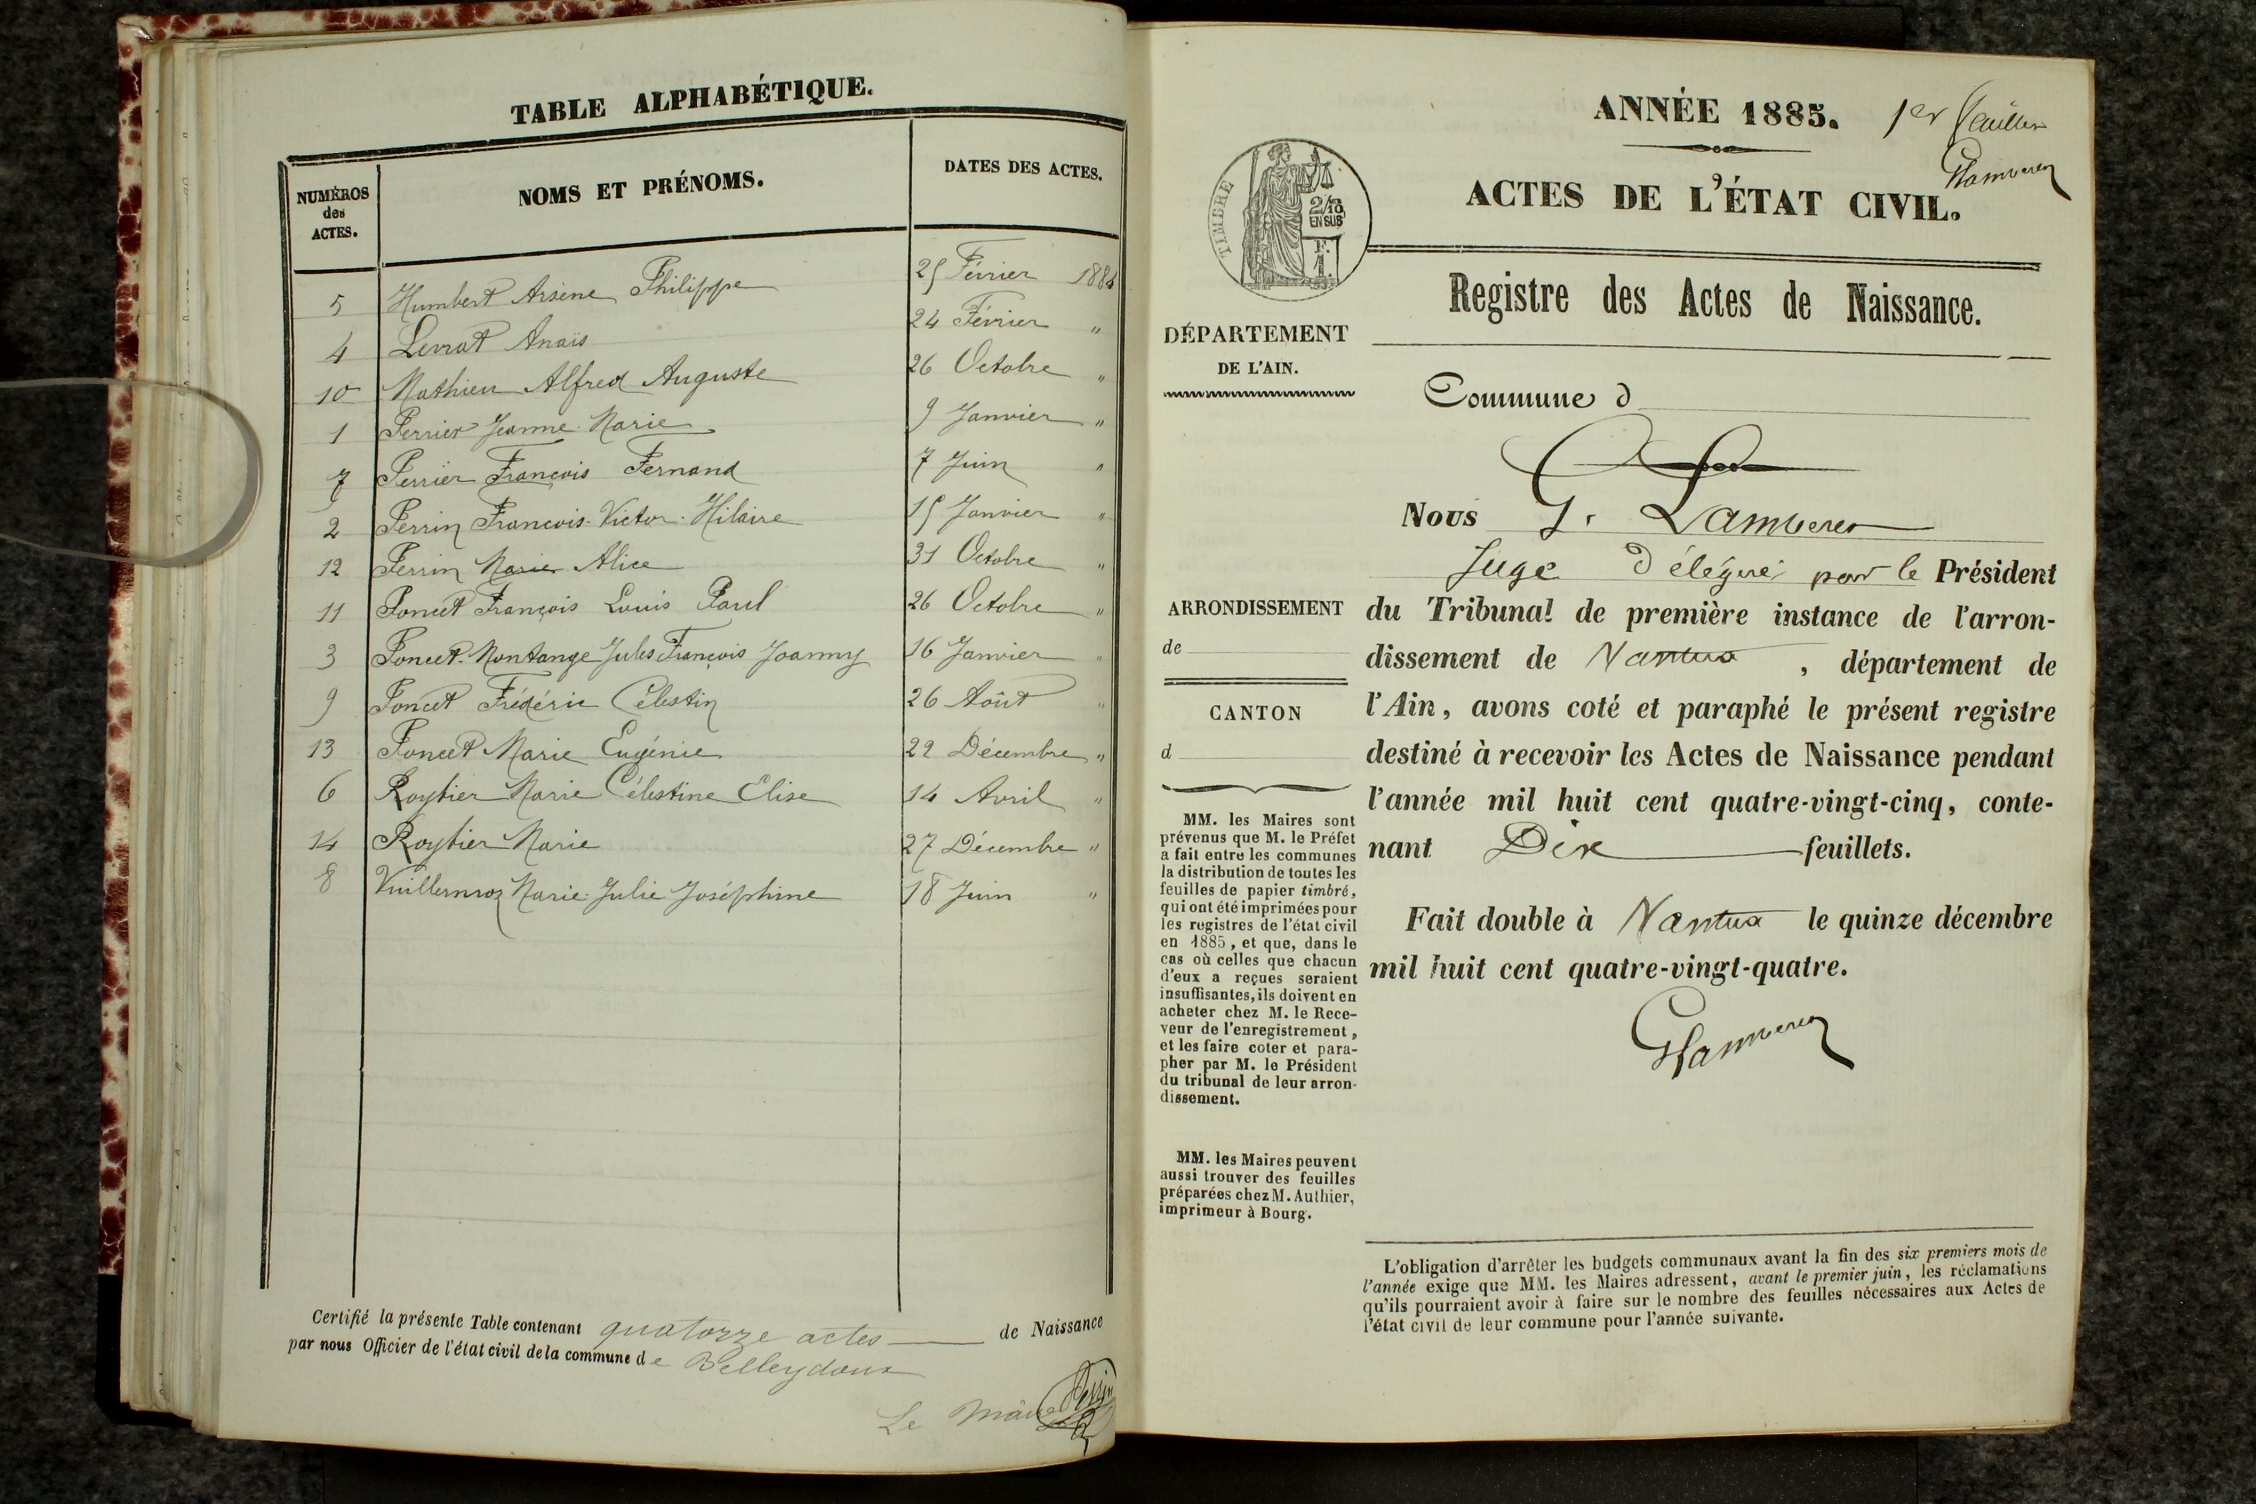 TABLE ALPHABÉTIQUE.
NUMÉROS
des
ACTES.
NOMS ET PRÉNOMS.
DATES DES ACTES.
5 Humbert Arsène Philippe 25 Février 1884
4 Levrat Anaïs 24 Février "
10 Mathieu Alfred Auguste 26 Octobre "
1 Perrier Jeanne Marie 9 Janvier "
7 Perrier François Fernand 7 Juin "
2 Perrin François Victor Hilaire 15 Janvier "
12 Perrin Marie Alice 31 Octobre "
11 Poncet François Louis Paul 26 Octobre "
3 Poncet-Montange Jules François Joanny 16 Janvier "
9 Poncet Frédéric Célestin 26 Août "
13 Poncet Marie Eugénie 22 Décembre "
6 Roybier Marie Célestine Elise 14 Avril "
14 Roybier Marie 27 Décembre "
8 Vuillermoz Marie Julie Joséphine 18 Juin "
Certifié la présente Table contenant quatorze actes de Naissance
par nous Officier de l'état civil de la commune de Belleydoux
Le Maire Perrin
ANNÉE 1885.
1er feuillet
ACTES DE L'ÉTAT CIVIL.
TIMBRE
2/10
EN SUS
F.
1.
Registre des Actes de Naissance.
DÉPARTEMENT
DE L'AIN.
Commune d
Nous G.
Juge Délégué par le Président
ARRONDISSEMENT
de
CANTON
d
du Tribunal de première instance de l'arron-
dissement de Nantua, département de
l'Ain, avons coté et paraphé le présent registre
destiné à recevoir les Actes de Naissance pendant
l'année mil huit cent quatre-vingt-cinq, conte-
nant Dix feuillets.
Fait double à Nantua le quinze décembre
mil huit cent quatre-vingt-quatre.
MM. les Maires sont
prévenus que M. le Préfet
a fait entre les communes
la distribution de toutes les
feuilles de papier timbré,
qui ont été imprimées pour
les registres de l'état civil
en 1885, et que, dans le
cas où celles que chacun
d'eux a reçues seraient
insuffisantes, ils doivent en
acheter chez M. le Rece-
veur de l'enregistrement,
et les faire coter et para-
pher par M. le Président
du tribunal de leur arron-
dissement.
MM. les Maires peuvent
aussi trouver des feuilles
préparées chez M. Authier,
imprimeur à Bourg.
L'obligation d'arrêter les budgets communaux avant la fin des six premiers mois de
l'année exige que MM. les Maires adressent, avant le premier juin, les réclamations
qu'ils pourraient avoir à faire sur le nombre des feuilles nécessaires aux Actes de
l'état civil de leur commune pour l'année suivante.